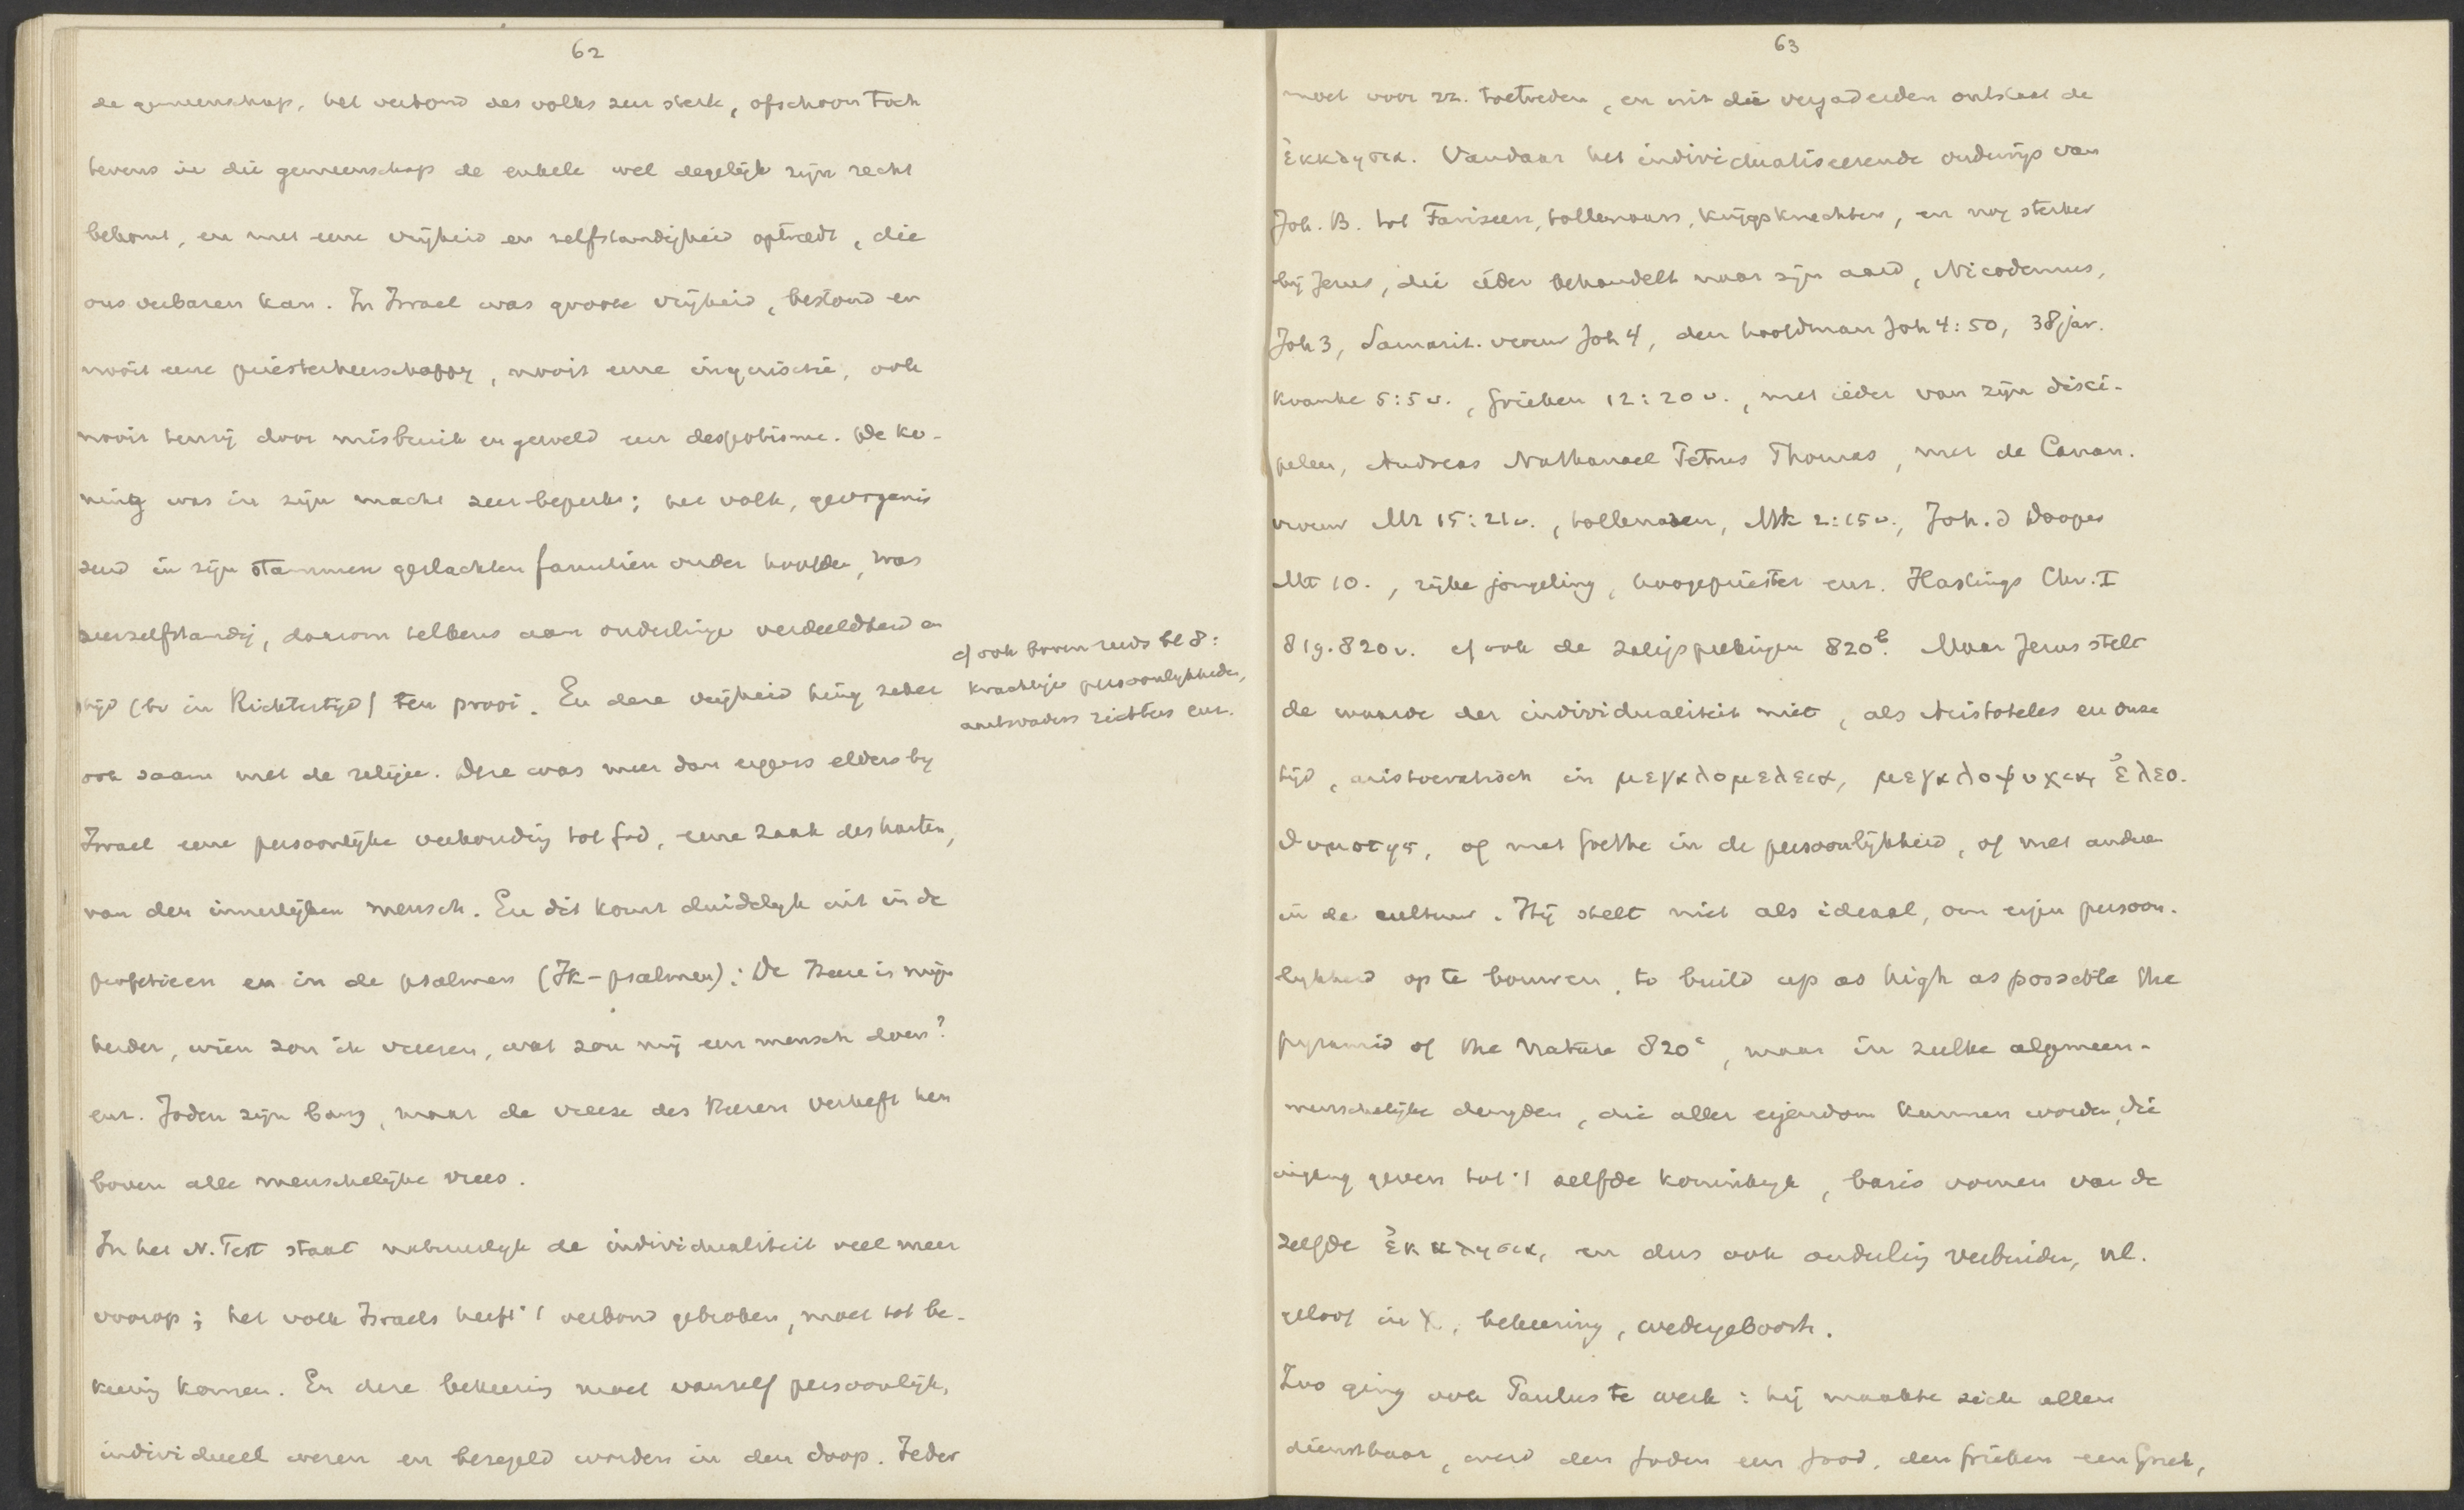 62
de gemeenschap, het verbond des volks zeer sterk, ofschoon toch
tevens in die gemeenschap de enkele wel degelijk zijn recht
bekomt, en met eene vrijheid en zelfstandigheid optreedt, die
ons verbazen kan. In Israel was groote vrijheid, bestond er
nooit eene priesterheerschappy, nooit eene inquisitie, ook
nooit tenzij door misbruik en geweld een despotisme. De ko-
ning was in zijn macht zeer beperkt; het volk, georganis
eerd in zijn stammen geslachten familien onder hoofden, was
zeer zelfstandig, daarom telkens aan onderlinge verdeeldheid en
tijd (bv in Richtertijd) ten prooi. En deze vrijheid hing zeker
cf ook boven reeds bl 8:
krachtige persoonlykheden,
aartsvaders richters enz.
ook saam met de religie. Deze was meer dan ergens elders by
Israel eene persoonlijke verhouding tot God, eene zaak des harten,
van den innerlijken mensch. En dit komt duidelyk uit in de
profetieen en in de psalmen (Ik-psalmen): De Heere is mijn
herder, wien zou ik vreezen, wat zou mij een mensch doen?
enz. Joden zijn bang, maar de vreeze des Heeren verheft hen
boven alle menschelijke vrees.
In het N. Test staat natuurlyk de individualiteit veel meer
voorop; het volk Israels heeft 't verbond gebroken, moet tot be-
keering komen. En deze bekeering moet vanzelf persoonlijk,
individueel wezen en bezegeld worden in den doop. Ieder
63
moet voor zz. toetreden, en uit die vergaderden ontstaat de
ἐκκλησια. Vandaar het individualiseerende onderwijs van
Joh. B. tot Farizeen, tollenaars, krijgsknechten, en nog sterker
bij Jezus, die ieder behandelt naar zijn aard, Nicodemus,
Joh 3, Samarit. vrouw Joh 4, den hoofdman Joh 4:50, 38jar.
kranke 5:5v., Grieken 12:20v., met ieder van zijn disci-
pelen, Andreas Nathanael Petrus Thomas, met de Canan.
vrouw Mt 15:21v., tollenaren, Mk 2:15v., Joh. d Dooper
Mt 10., rijke jongeling, hoogepriester enz. Hastings Chr. I
819.820v. cf ook de zaligsprekingen 820b. Maar Jezus stelt
de waarde der individualiteit niet, als Aristoteles en onze
tijd, aristocratisch in μεγαλομελεια, μεγαλοψυχια, ἐλεο.
θυμοτης, of met Goethe in de persoonlijkheid, of met andere
in de cultuur. Hij stelt niet als ideaal, om eigen persoon-
lykheid op te bouwen, to build up as high as possible the
pyramid of the nature 820a, maar in zulke algemeen-
menschelijke deugden, die aller eigendom kunnen worden, die
ingang geven tot 't zelfde koninkryk, basis vormen van de
zelfde ἐκκλησια, en dus ook onderling verbinden, nl.
geloof in X, bekeering, wedergeboorte.
Zoo ging ook Paulus te werk: hij maakte zich allen
dienstbaar, werd den Joden een Jood, den Grieken een Griek,